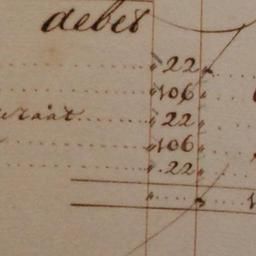 debet
" 22 "
" 106 "
" 22 "
" 106 "
" 22 "